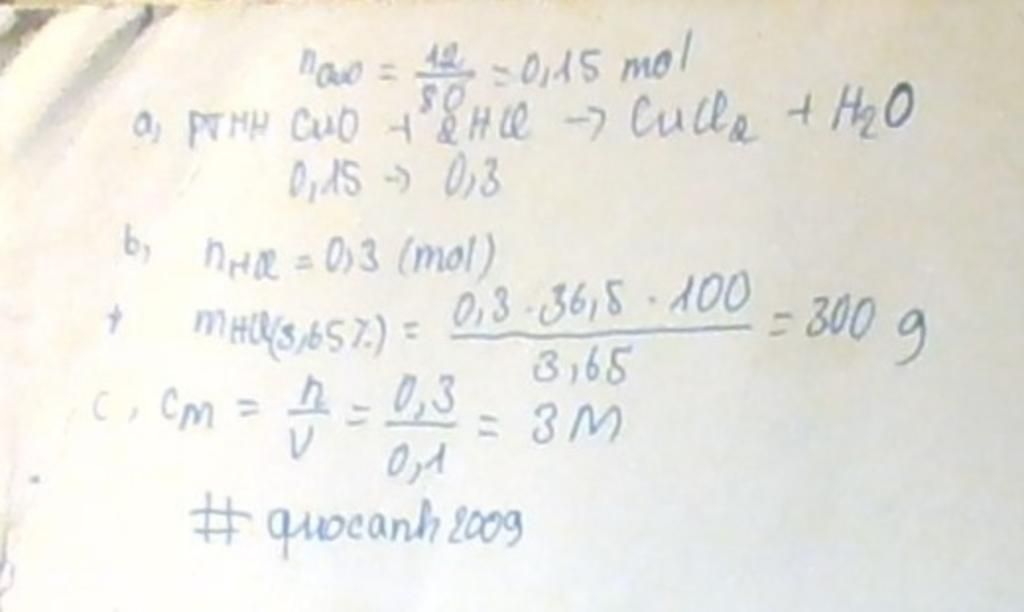 nCuO = 12/80 = 0,15 mol
a, PTHH CuO + 2HCl → CuCl2 + H2O
0,15 → 0,3
b, nHCl = 0,3 (mol)
+ mHCl(3,65%) = 0,3 . 36,5 . 100 / 3,65 = 300 g
c, CM = n/V = 0,3/0,1 = 3M
# quocanh2009